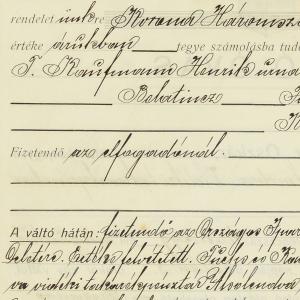 rendelet ünkre Korona Háromsz
értéke árukban tegye számolásba tud
T. Kaufmann Henrik úrna
Belatincz
Fizetendő az elfogadónál.
A váltó hátán: fizetendő az Országos Ipar
Értéke felvétetett. Fuchs és Kau
va vidéki takarékpénztár Alsólendva